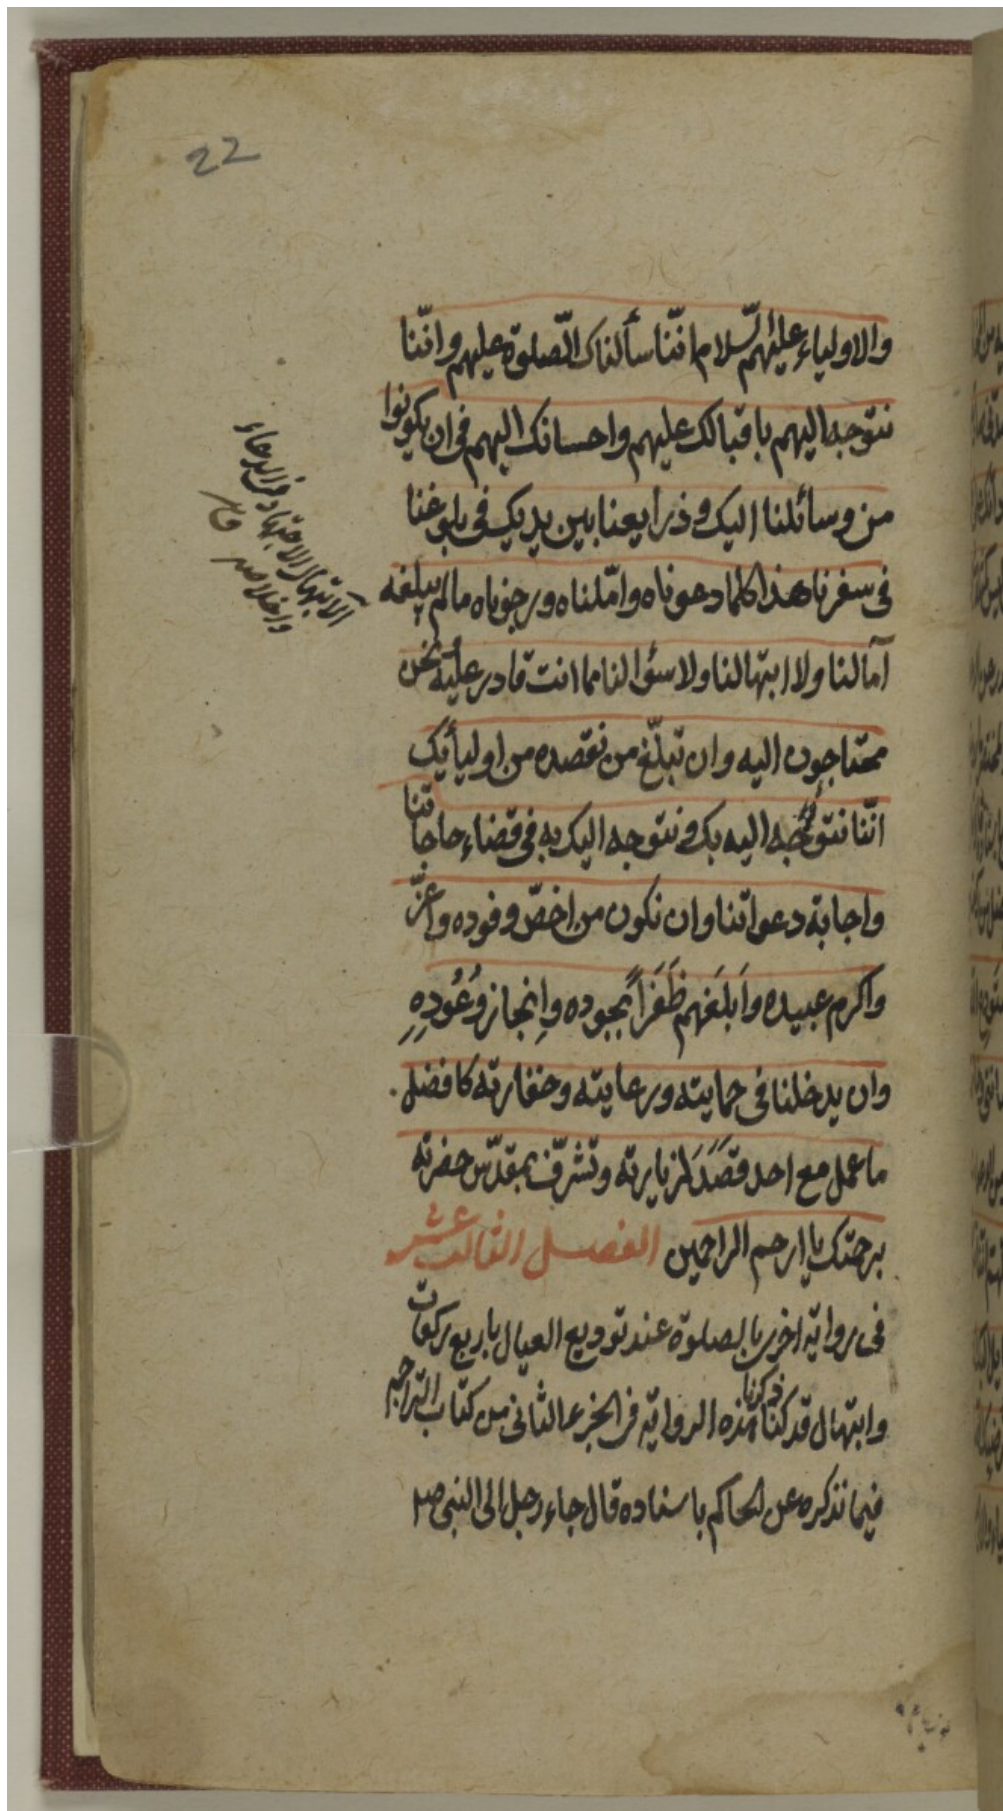 22
والاولياء عليهم السّلام انّنا سألناك الصّلوة عليهم وانّنا
نتوجه اليهم باقبالك عليهم واحسانك اليهم فى ان يكونوا
من وسائلنا اليك وذرايعنا بين يديك فى بلوغنا
فى سفرنا هذا كلما دعوناه وامّلناه ورجوناه مالم يبلغه
آمالنا ولا ابتهالنا ولا سؤالنا مما انت قادر عليه نحن
محتاجون اليه وان تبلّغ من نقصده من اوليائك
انّنا نتوجّه اليه بك ونتوجه اليك به فى قضاء حاجاتنا
واجابة دعواتنا وان نكون من اخصّ وفوده واعزّ
واكرم عبيده وَابلَغهم ظَفَراً بجوده واِنجاز وُعُودِهِ
وان يدخلنا فى حمايته ورعايته وخفارته كافضل
ما عمل مع احد قَصَدَ لزيارته وتشرّف بمقدّس حضرته
برحمتك يا ارحم الراحمين الفصل الثالث عشر
فى رواية اخرى بالصلوة عند توديع العيال باربع ركعات
وابتهال قد كنا ذكرنا هذه الرواية فى الجزء الثانى من كتاب التراجم
فيما نذكره عن الحاكم باسناده قال جاء رجل الى النبى ص
الابتهال الاجتهاد فى الدعاء
واخلاصه